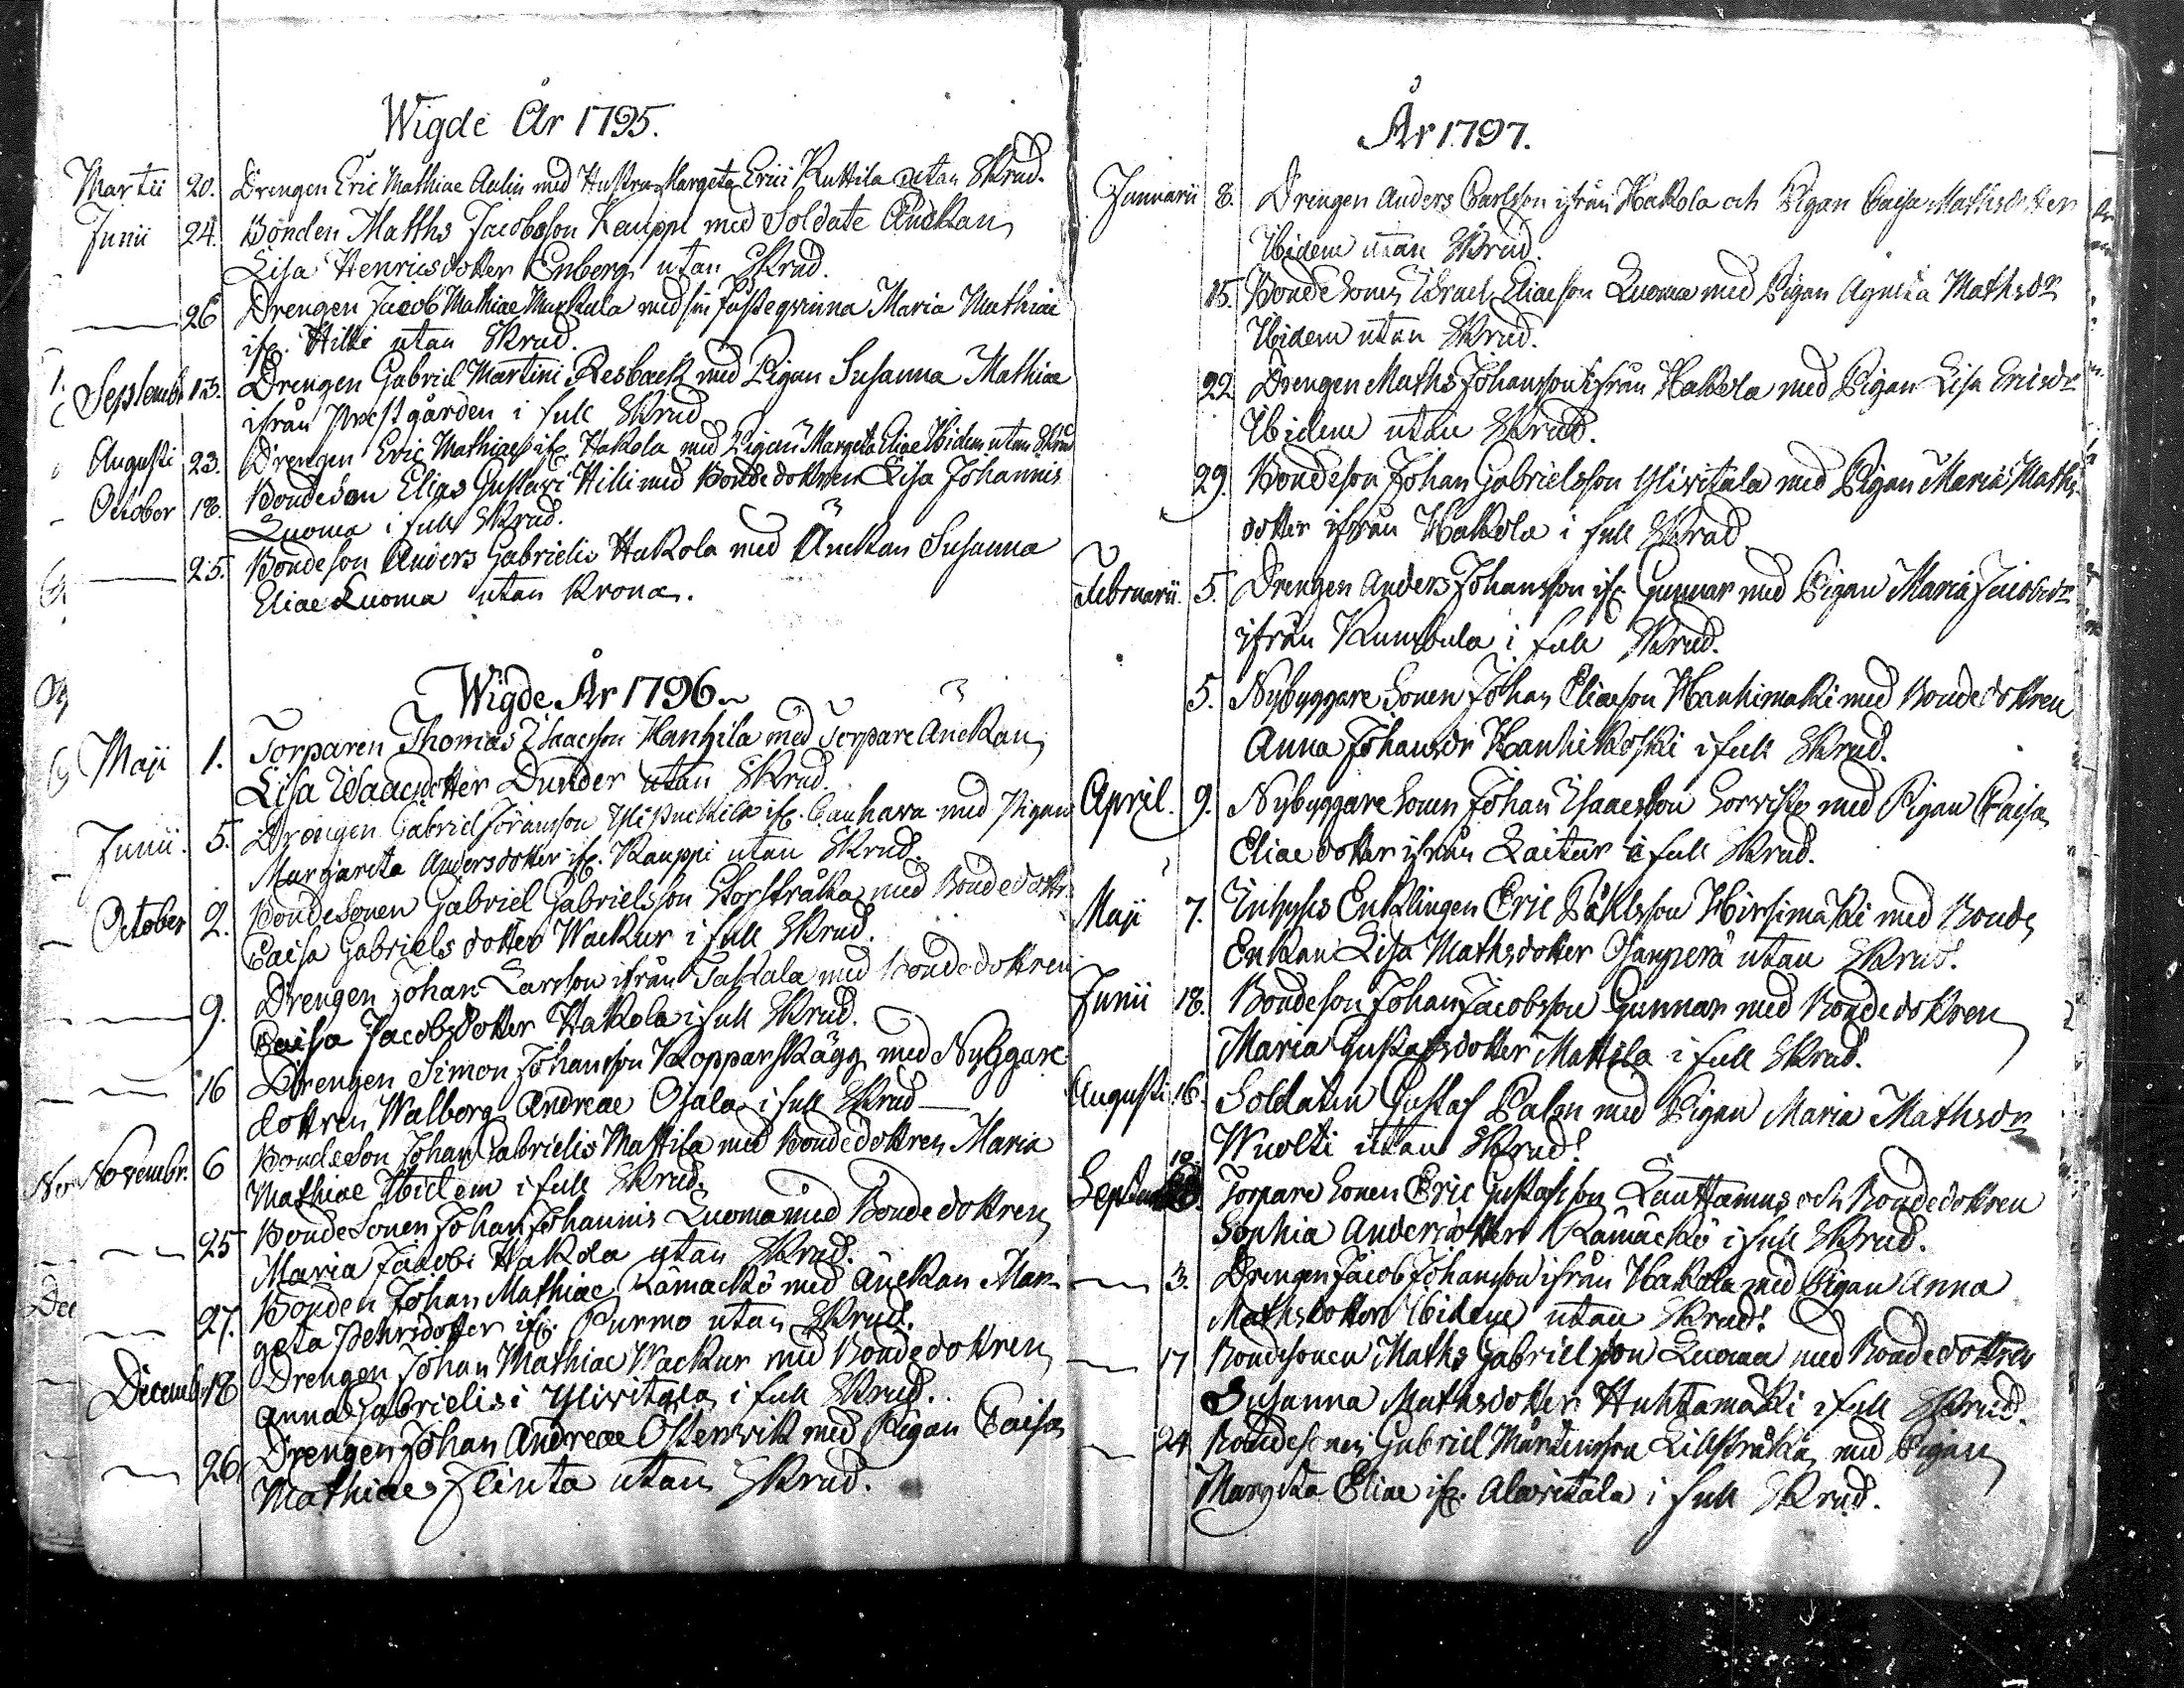 Wigde År 1795.
Martii 20. Drengen Eric Mathiae Aulin med Hustru Margeta Erici Ruttila utan Skrud.
Junii 24. Bonden Matths Jacobsson Kauppi med Soldate Änckan
Lisa Henricsdotter Enberg utan Skrud.
26 Drengen Jacob Mathiae Markula med sin fästeqvinna Maria Mathiae
ifr. Hilli utan Skrud.
Septembr 13. Drengen Gabriel Martini Resback med Pigan Susanna Mathiae
ifrån Prestgården i full Skrud
Augusti 23. Drengen Eric Mathiae ifr. Hakola med Pigan Margeta Eliae Ibidem utan Skrud
October 18. Bondeson Elias Gustavi Hilli med Bondedottren Lisa Johannis
Luoma i full Skrud.
25. Bondeson Anders Gabrielis Hakola med Änckan Susanna
Eliae Luoma utan Krona.
Wigde År 1796
Maji 1. Torparen Thomas Isaacsson Kanhila med Torpare Änckan
Lisa Isaacsdotter Dunder utan Skrud.
Junii. 5. Drengen Gabriel Göransson ifr. Cauhava med Pigan
Margareta Andersdotter ifr. Kauppi utan Skrud.
October 2. Bondesonen Gabriel Gabrielsson Storstråka med Bondedottr
Caisa Gabrielsdotter Wackur i full Skrud.
9. Drengen Johan Larsson ifrån Takala med Bondedottren
Caisa Jacobsdotter Hakola i full Skrud.
16 Drengen Simon Johansson Kopparskägg med Nybggare
dottren Walborg Andreae Ojala i full Skrud
Novembr. 6 Bondeson Johan Gabrielis Mattila med Bondedottren Maria
Mathiae Ibidem i full Skrud.
25 Bondesonen Johan Johannis Luoma med Bondedottren
Maria Jacobi Hakola utan Skrud.
27. Bonden Johan Mathiae Kämackö med Änckan Mar
geta Pehrsdotter ifr. Purmo utan Skrud.
Decemb 18 Drengen Johan Mathiae Wackur med Bondedottren
Anna Gabrielis i Ylivitala i full Skrud.
26. Drengen Johan Andreae Osterwik med Pigan Caisa
Mathiae Flinta utan Skrud.
År 1797.
Januarii 8. Drengen Anders Carlsson ifrån Hakola och Pigan Caisa Mathsdotter
Ibidem utan Skrud.
15. Bondesonen Israel Eliaeson Luoma med Pigan Agneta Mathsdr
Ibidem utan Skrud.
22. Drengen Maths Johansson ifrån Hakola med Pigan Lisa Ericsdr
Ibidem utan Skrud.
29. Bondeson Johan Gabrielsson Ylivitala med Pigan Maria Maths
dotter ifrån Hakola i full Skrud
Februarii. 5. Drengen Anders Johansson ifr. Gunnar med Pigan Maria Jacobsdr
ifrån Kumbula i full Skrud.
5. Nybyggare Sonen Johan Eliaeson Hanhimaki med Bondedottren
Anna Johansdr Hanhikoski i full Skrud.
April. 9. Nybyggare Sonen Johan Isaacsson Sorvisto med Pigan Caisa
Eliaedotter ifrån Kaitur i full Skrud.
Maji 7. Inhyses Enklingen Eric Påhlsson Hirsimäki med Bonde
Enkan Lisa Mathsdotter Ojanperä utan Skrud.
Junii 18. Bondeson Johan Jacobsson Gunnar med Bondedottren
Maria Gustafsdotter Mattila i full Skrud.
Augusti 16. Soldaten Gustaf Palm med Pigan Maria Mathsdr
Wuolti utan Skrud.
Septemb 10. Torpare Sonen Eric Gustafsson Lauttamus och Bondedottren
Sophia Andersdotter Kämäckö i full Skrud.
3. Drengen Jacob Johansson ifrån Hakola med Pigan Anna
Mathsdotter Ibidem utan Skrud.
17 Bondesonen Maths Gabrielsson Luoma med Bondedottren
Susanna Mathsdotter Huhtamäki i full Skrud.
24 Bondesonen Gabriel Mårtensson Lillstråka med Pigan
Margeta Eliae ifr. Alavitala i full Skrud.